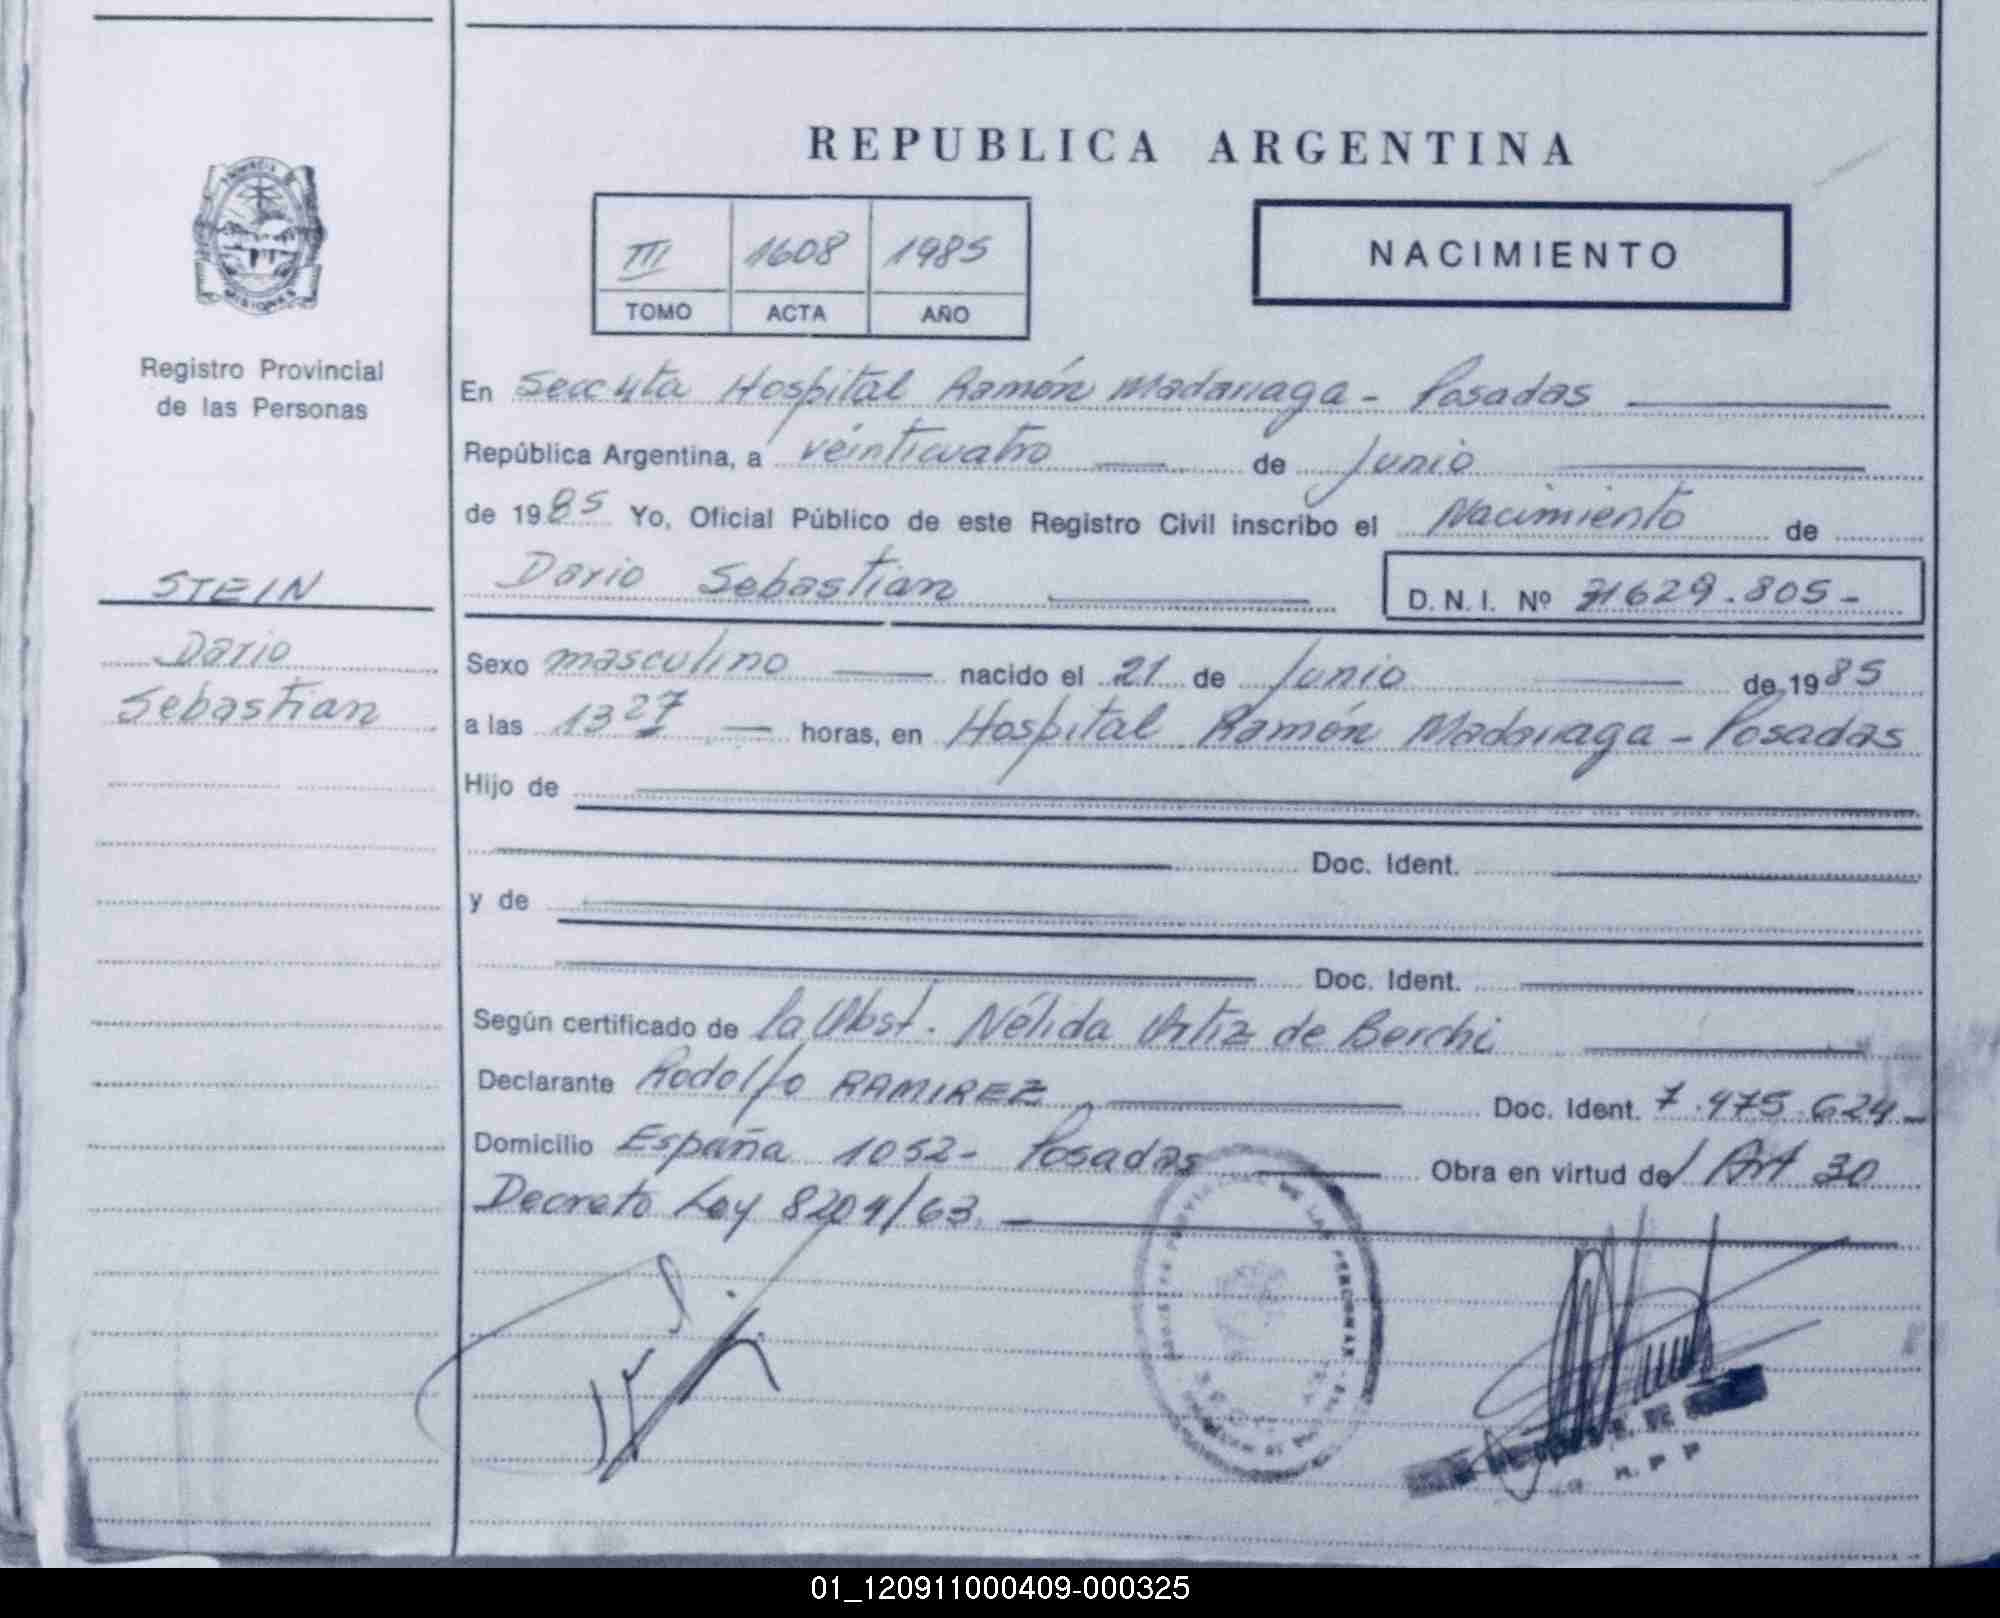 REPUBLICA ARGENTINA
III 1608 1985
TOMO ACTA AÑO
NACIMIENTO
Registro Provincial
de las Personas
En Secc 4ta Hospital Ramón Madariaga - Posadas
República Argentina, a veinticuatro de Junio
de 1985 Yo, Oficial Público de este Registro Civil inscribo el Nacimiento de
STEIN
Dario Sebastian D.N.I. Nº 31629.805-
Dario
Sebastian
Sexo masculino nacido el 21 de Junio de 1985
a las 13 27 horas, en Hospital Ramón Madariaga - Posadas
Hijo de
Doc. Ident.
y de
Doc. Ident.
Según certificado de la Obst. Nélida Ortiz de Berchi
Declarante Rodolfo RAMIREZ Doc. Ident. 7.475.624-
Domicilio España 1052- Posadas Obra en virtud del Art 30
Decreto Ley 8204/63.
01_120911000409-000325